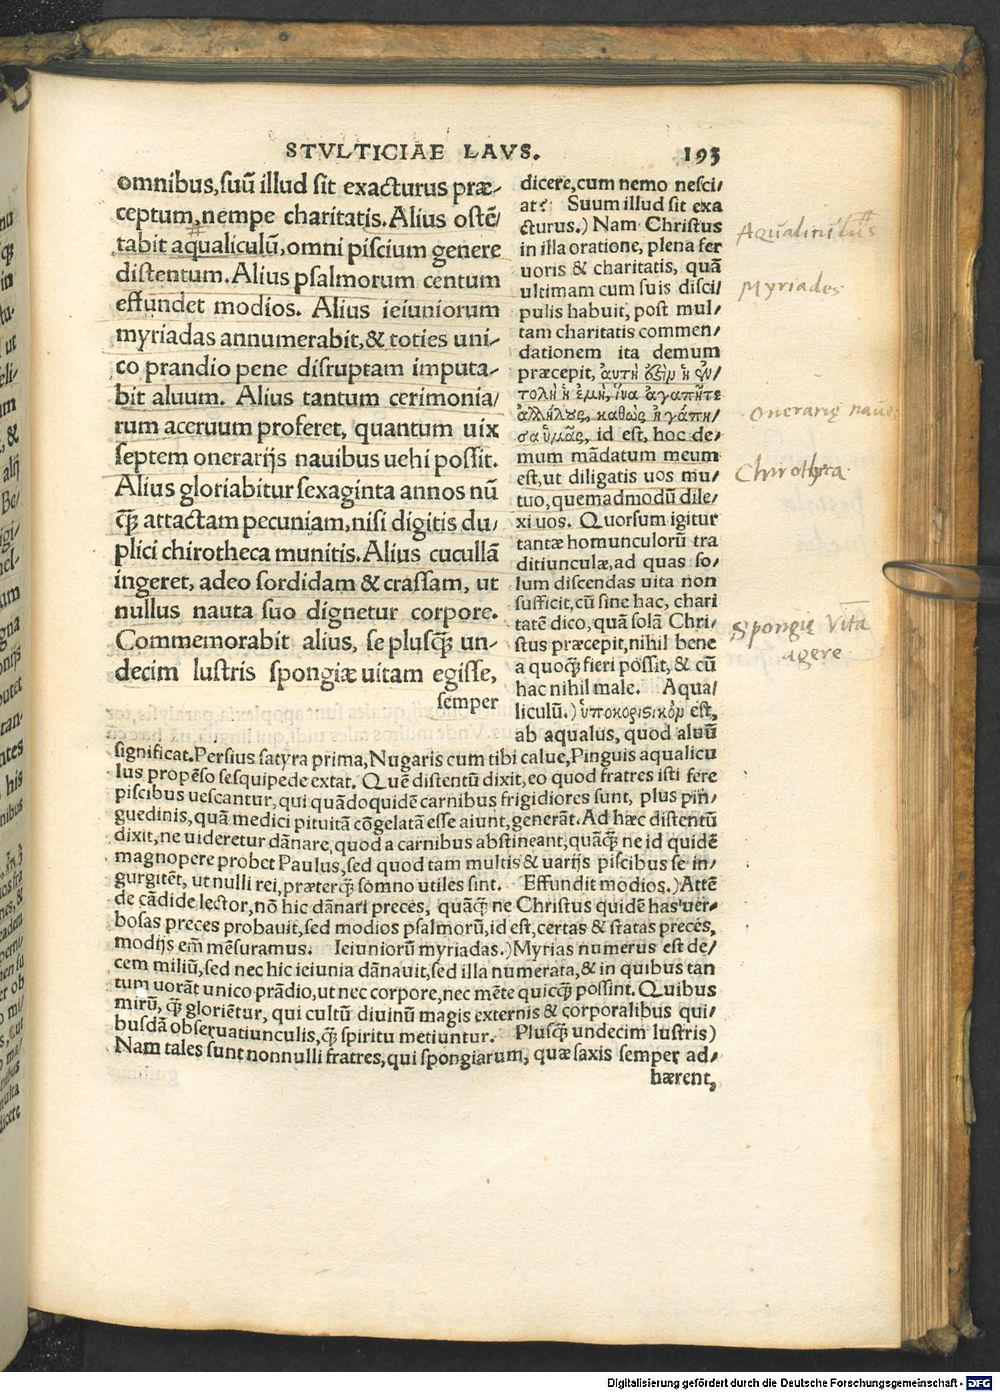 STVLTICIAE LAVS. 195
omnibus,suū illud sit exacturus præ-
ceptum,nempe charitatis.Alius ostē/
tabit aqualiculū,omni piscium genere
distentum.Alius psalmorum centum
effundet modios. Alius ieiuniorum
myriadas annumerabit,& toties uni-
co prandio pene disruptam imputa-
bit aluum. Alius tantum cerimonia/
rum aceruum proferet, quantum uix
septem onerarijs nauibus uehi possit.
Alius gloriabitur sexaginta annos nū
q̄ attactam pecuniam,nisi digitis du/
plici chirotheca munitis.Alius cucullā
ingeret, adeo sordidam & crassam, ut
nullus nauta suo dignetur corpore.
Commemorabit alius, se plusq̄ un-
decim lustris spongiæ uitam egisse,
semper
dicere,cum nemo nesci/
at? Suum illud sit exa
cturus.) Nam Christus
in illa oratione, plena fer
uoris & charitatis, quā
ultimam cum suis disci/
pulis habuit, post mul/
tam charitatis commen/
dationem ita demum
præcepit, αυτη ὀξὶμ ἡ ἐν/
τολὴ ἡ ἐμὴ, ἵνα ἀγαπῆτε
ἀλλήλους, καθὼς ἠγάπη/
σα ὑμᾶς, id est, hoc de/
mum mādatum meum
est,ut diligatis uos mu/
tuo,quemadmodū dile/
xi uos. Quorsum igitur
tantæ homunculorū tra
ditiunculæ,ad quas so/
lum discendas uita non
sufficit,cū sine hac, chari
tatē dico,quā solā Chri/
stus præcepit,nihil bene
a quoq̄ fieri possit, & cū
hac nihil male. Aqua/
liculū.) ὑποκοριστικὸμ est,
ab aqualus, quod aluū
significat.Persius satyra prima,Nugaris cum tibi calue,Pinguis aqualicu
lus propēso sesquipede extat. Quē distentū dixit,eo quod fratres isti fere
piscibus uescantur,qui quādoquidē carnibus frigidiores sunt, plus pin/
guedinis,quā medici pituitā cōgelatā esse aiunt,generāt.Ad hæc distentū
dixit,ne uideretur dānare,quod a carnibus abstineant,quāq̄ ne id quidē
magnopere probet Paulus,sed quod tam multis & uarijs piscibus se in/
gurgitēt, ut nulli rei,præterq̄ somno utiles sint. Effundit modios.)Attē
de cādide lector,nō hic dānari preces, quāq̄ ne Christus quidē has uer/
bosas preces probauit,sed modios psalmorū,id est,certas & statas preces,
modijs em̄ mēsuramus. Ieiuniorū myriadas.)Myrias numerus est de/
cem miliū,sed nec hic ieiunia dānauit,sed illa numerata,& in quibus tan
tum uorāt unico prādio,ut nec corpore,nec mēte quicq̄ possint.Quibus
mirū, q̄ gloriētur, qui cultū diuinū magis externis & corporalibus qui/
busdā obseruatiunculis,q̄ spiritu metiuntur. Plusq̄ undecim lustris)
Nam tales sunt nonnulli fratres,qui spongiarum, quæ saxis semper ad/
hærent,
Myriades
Onerarię naues
Chirothęca
Spongię Vitā
agere
Digitalisierung gefördert durch die Deutsche Forschungsgemeinschaft - DFG